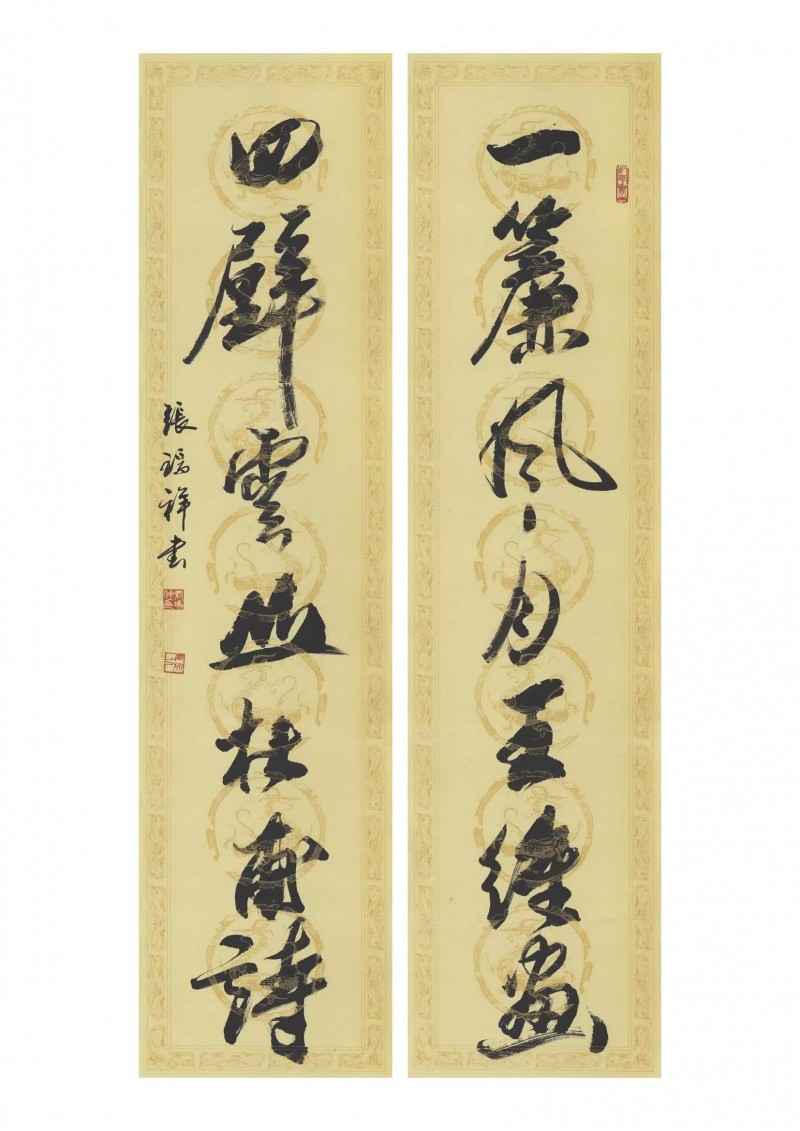 一簾風月王維畫
四壁雲山杜甫詩
張瑞祥书